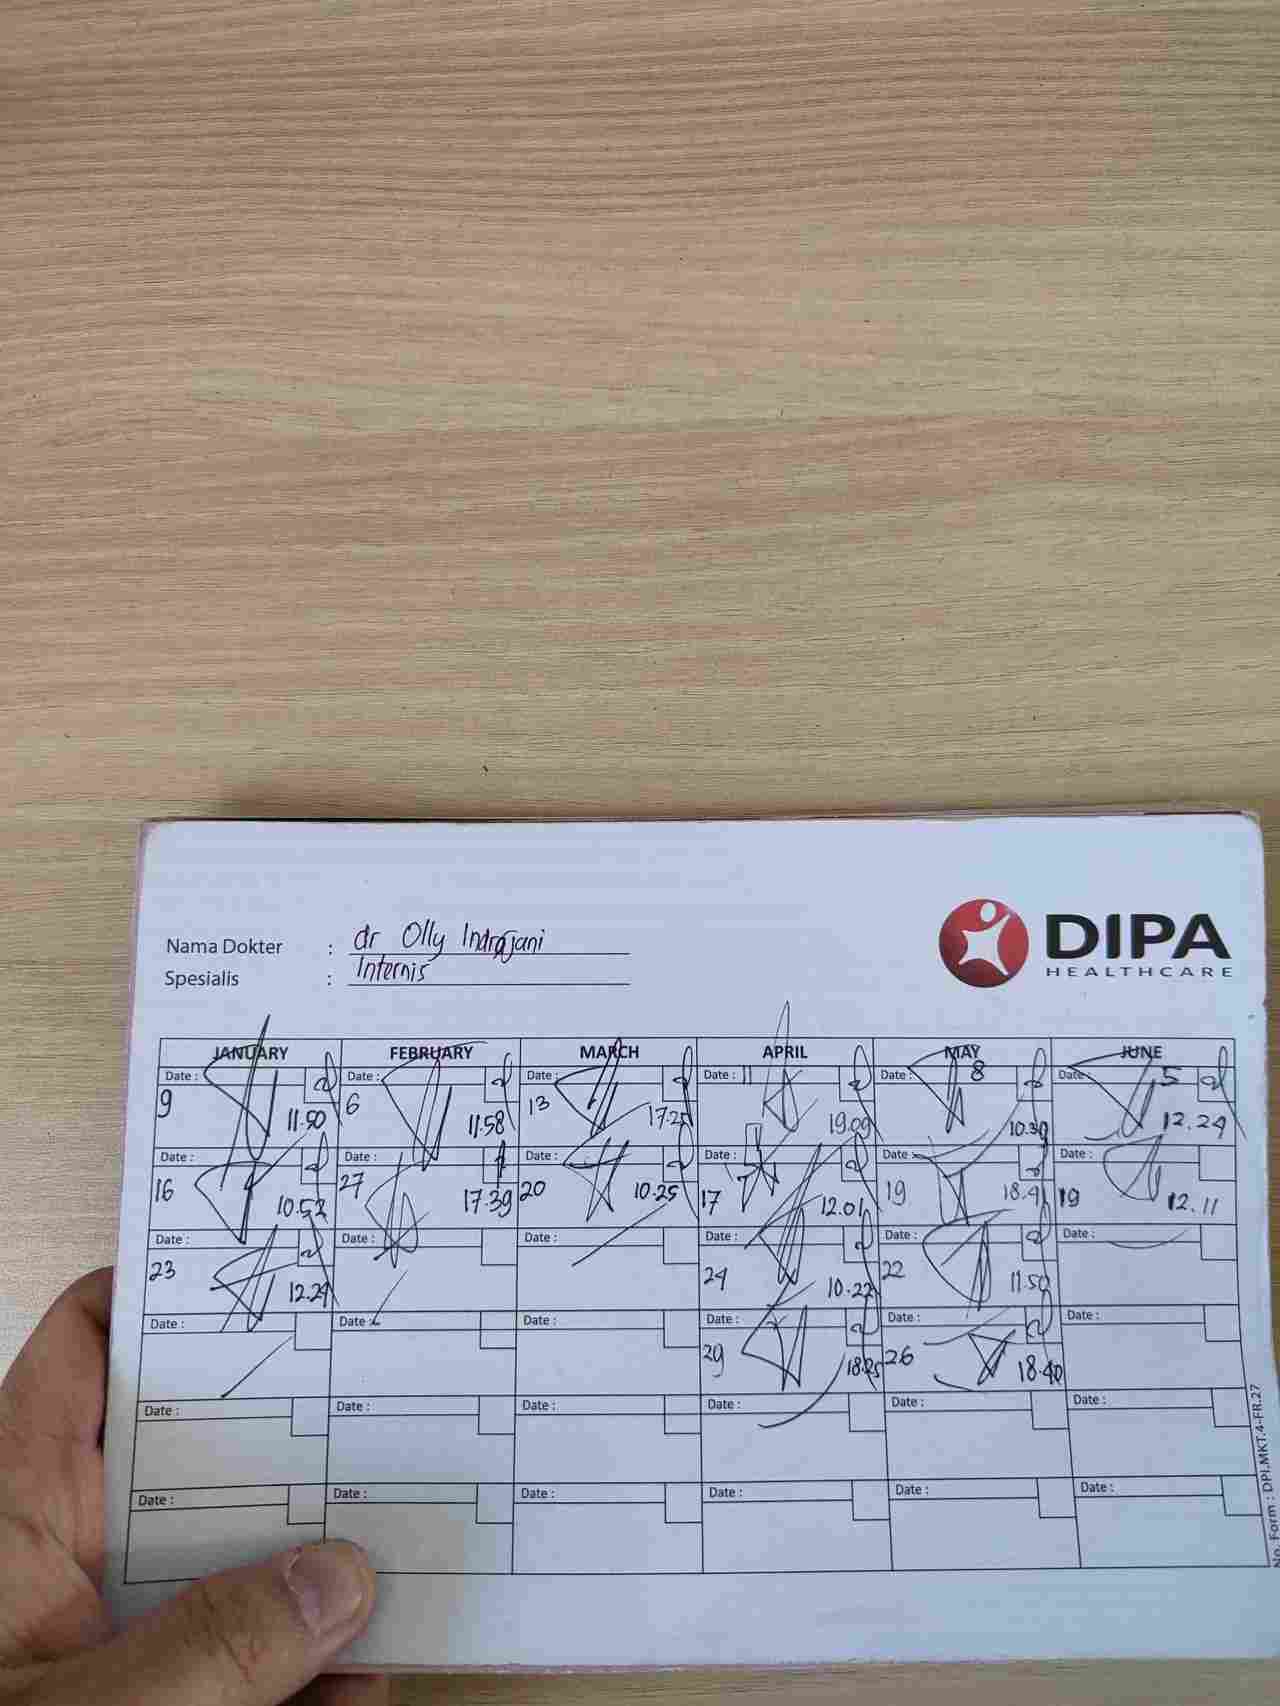 Nama Dokter : dr Olly Indrajani
Spesialis : Internis
DIPA
HEALTHCARE
JANUARY FEBRUARY MARCH APRIL MAY JUNE
Date : Date : Date : Date : 11 Date : 8 Date : 5
9 11.50 6 11.58 13 17.25 19.09 10.39 12.24
Date : Date : Date : Date : Date : Date :
16 10.52 27 17.39 20 10.25 17 12.01 19 18.41 19 12.11
Date : Date : Date : Date : Date : Date :
23 12.29 24 10.22 22 11.50
Date : Date : Date : Date : Date : Date :
29 18.25 26 18.40
Date : Date : Date : Date : Date : Date :
Date : Date : Date : Date : Date : Date :
No. Form : DPI.MKT.4-FR.27